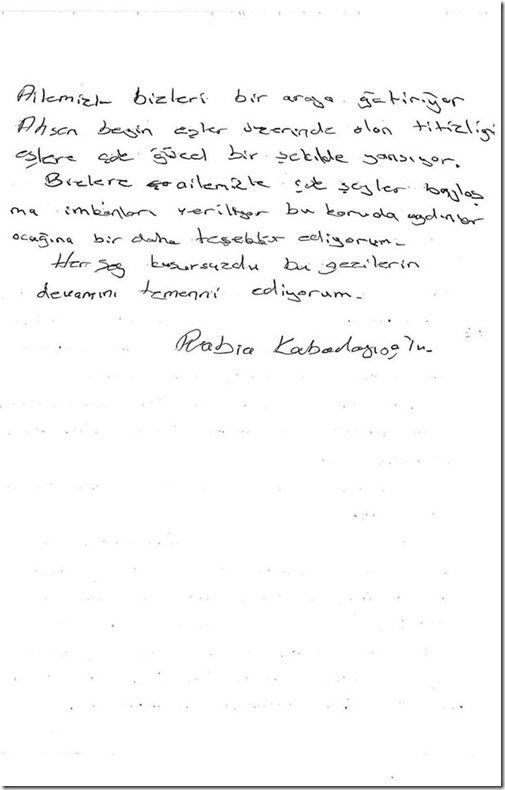 Ailemizle bizleri bir araya getiriyor
Ahsen beyin eşler üzerinde olan titizliği
eşlere çok güzel bir şekilde yansıyor.
Bizlere ailemizle çok şeyler paylaş
ma imkanları veriliyor bu konuda aydınlar
ocağına bir daha teşekkür ediyorum.
Her şey kusursuzdu bu gezilerin
devamını temenni ediyorum.
Rabia Kabadayıoğlu